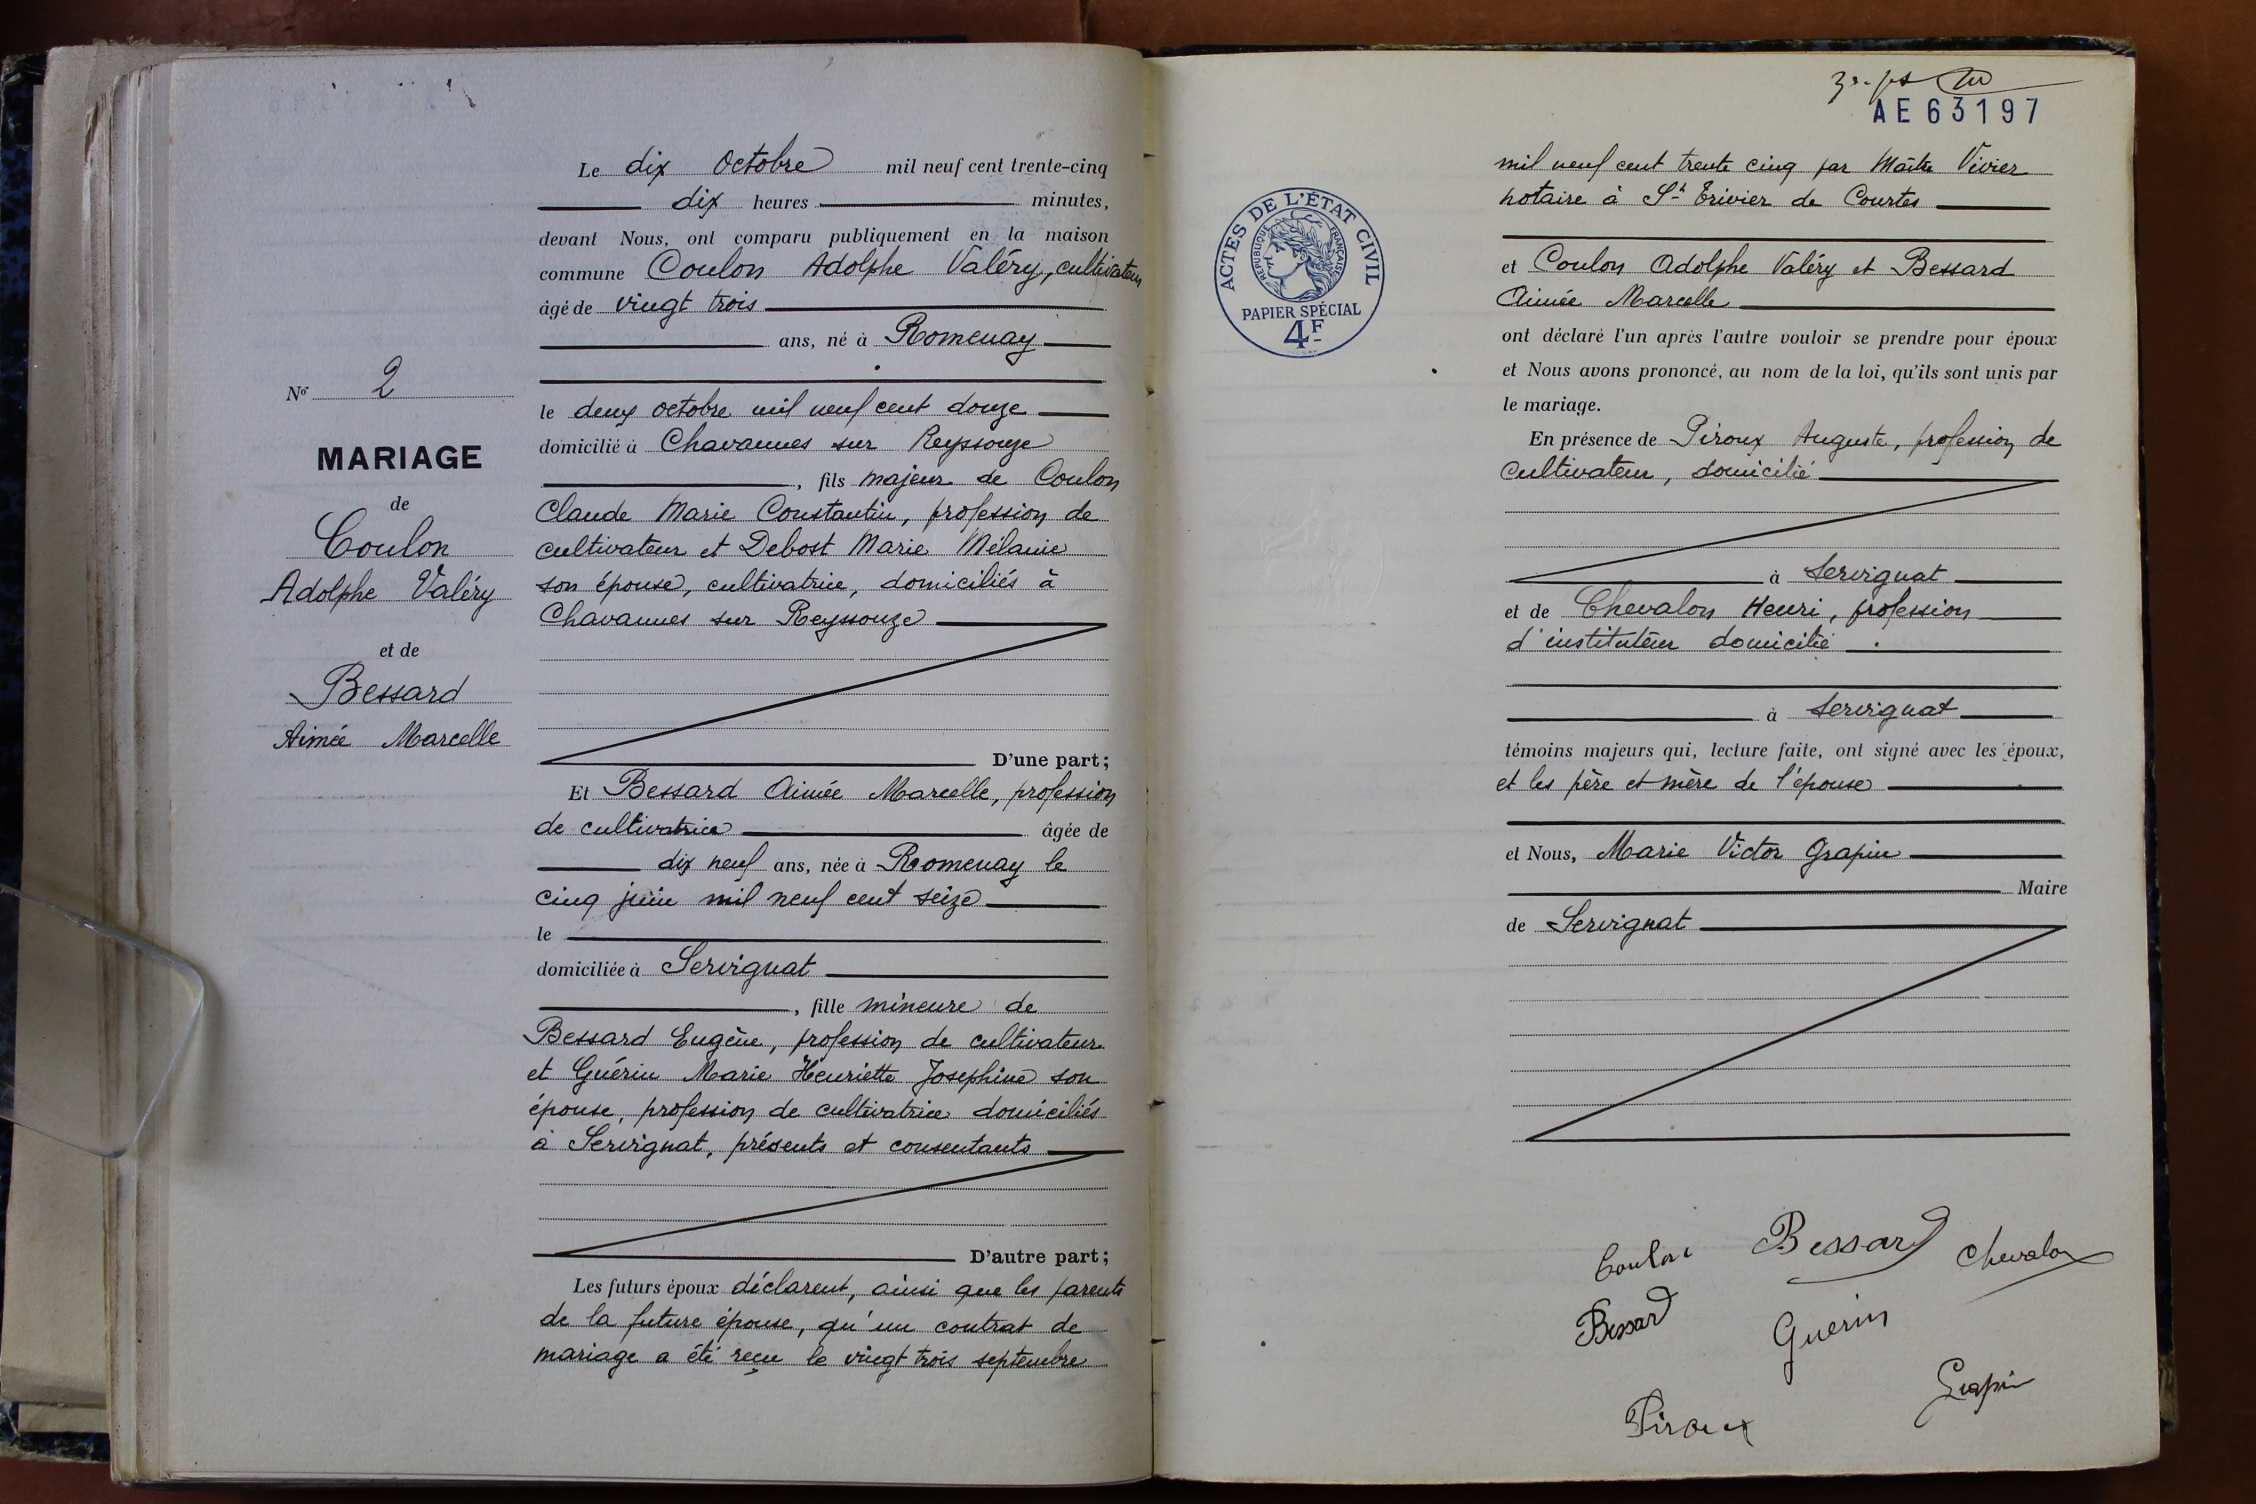 Nº 2
MARIAGE
de
Coulon
Adolphe Valéry
et de
Bessard
Aimée Marcelle
Le dix Octobre mil neuf cent trente-cinq
dix heures minutes,
devant Nous, ont comparu publiquement en la maison
commune Coulon Adolphe Valéry, cultivateur
âgé de vingt trois
ans, né à Romenay
le deux octobre mil neuf cent douze
domicilié à Chavannes sur Reyssouze
, fils majeur de Coulon
Claude Marie Constantin, profession de
cultivateur et Debost Marie Mélanie
son épouse, cultivatrice, domiciliés à
Chavannes sur Reyssouze
D'une part;
Et Bessard Aimée Marcelle, profession
de cultivatrice âgée de
dix neuf ans, née à Romenay le
cinq juin mil neuf cent seize
le
domiciliée à Servignat
, fille mineure de
Bessard Eugène, profession de cultivateur
et Guérin Marie Henriette Josephine son
épouse, profession de cultivatrice domiciliés
à Servignat, présents et consentants
D'autre part;
Les futurs époux déclarent, ainsi que les parents
de la future épouse, qu'un contrat de
mariage a été reçu le vingt trois septembre
AE63197
ACTES DE L'ÉTAT CIVIL
RÉPUBLIQUE FRANÇAISE
PAPIER SPÉCIAL
4F
mil neuf cent trente cinq par Maître Vivier
notaire à St Trivier de Courtes
et Coulon Adolphe Valéry et Bessard
Aimée Marcelle
ont déclaré l'un après l'autre vouloir se prendre pour époux
et Nous avons prononcé, au nom de la loi, qu'ils sont unis par
le mariage.
En présence de Piroux Auguste, profession de
cultivateur, domicilié
à Servignat
et de Chevalon Henri, profession
d'instituteur domicilié
à Servignat
témoins majeurs qui, lecture faite, ont signé avec les époux,
et les père et mère de l'épouse
et Nous, Marie Victor Grapin
Maire
de Servignat
Coulon Bessard Chevalon
Bessard Guerin
Grapin
Piroux